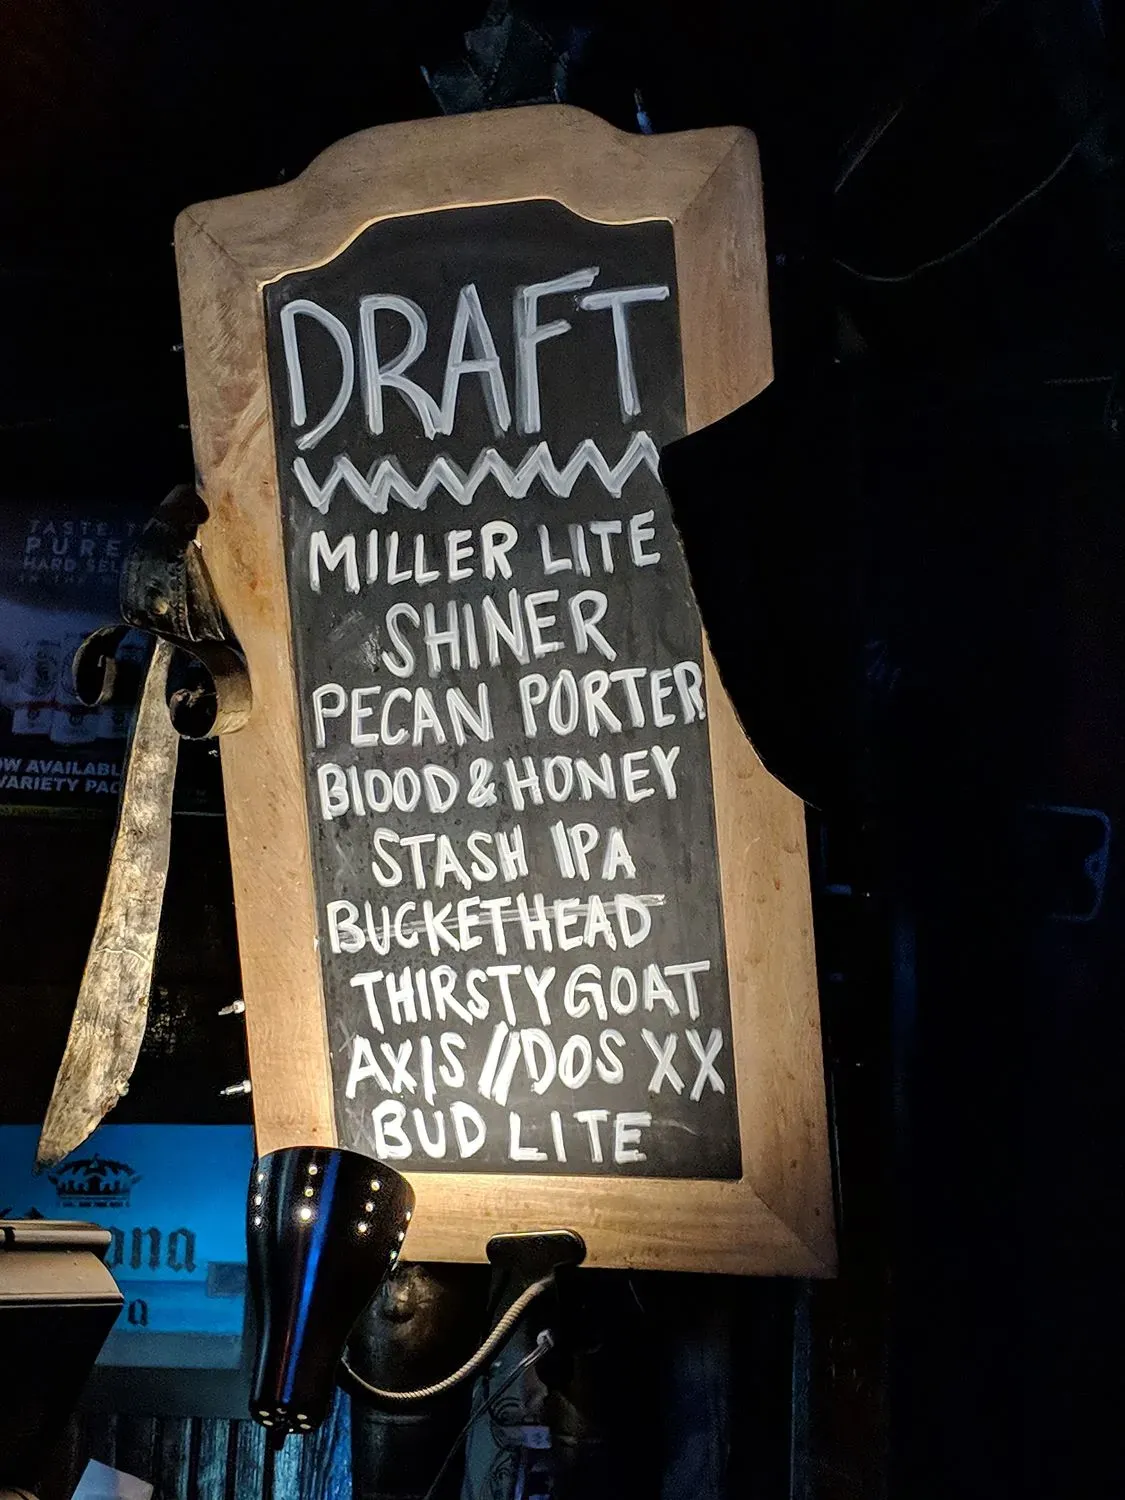 DRAFT
MILLER LITE
SHINER
PECAN PORTER
BLOOD & HONEY
STASH IPA
BUCKETHEAD
THIRSTY GOAT
AXIS // DOS XX
BUD LITE
TASTE
PURE
HARD
IN THE
VARIETY